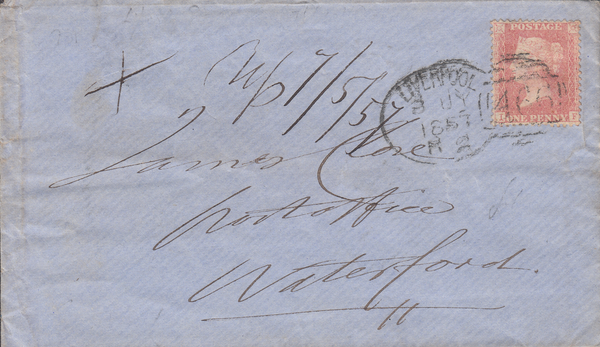 POSTAGE
ONE PENNY
LIVERPOOL
1857
466
7/5/57
James
Post office
Waterford.